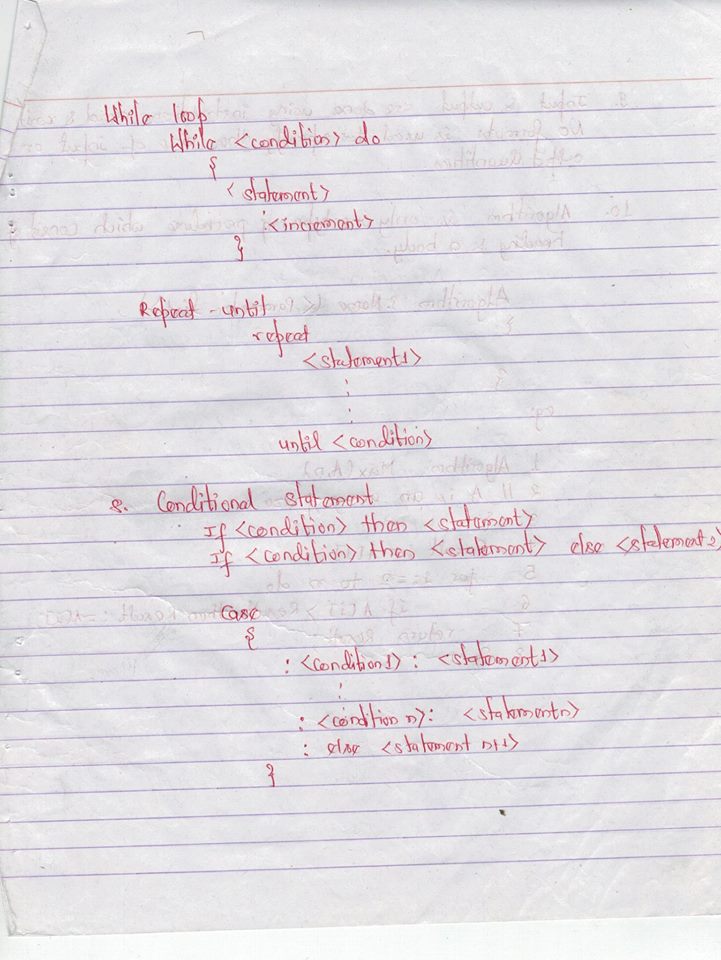 While loop
While <condition> do
{
< statement>
:
:<increment>
}
Repeat - until
repeat
<statement1>
:
:
until <condition>
8. Conditional statement
If <condition> then <statement>
If <condition> then <statement> else <statement2>
Case
{
: <condition1> : <statement1>
:
: <condition n>: <statementn>
: else <statement n+1>
}